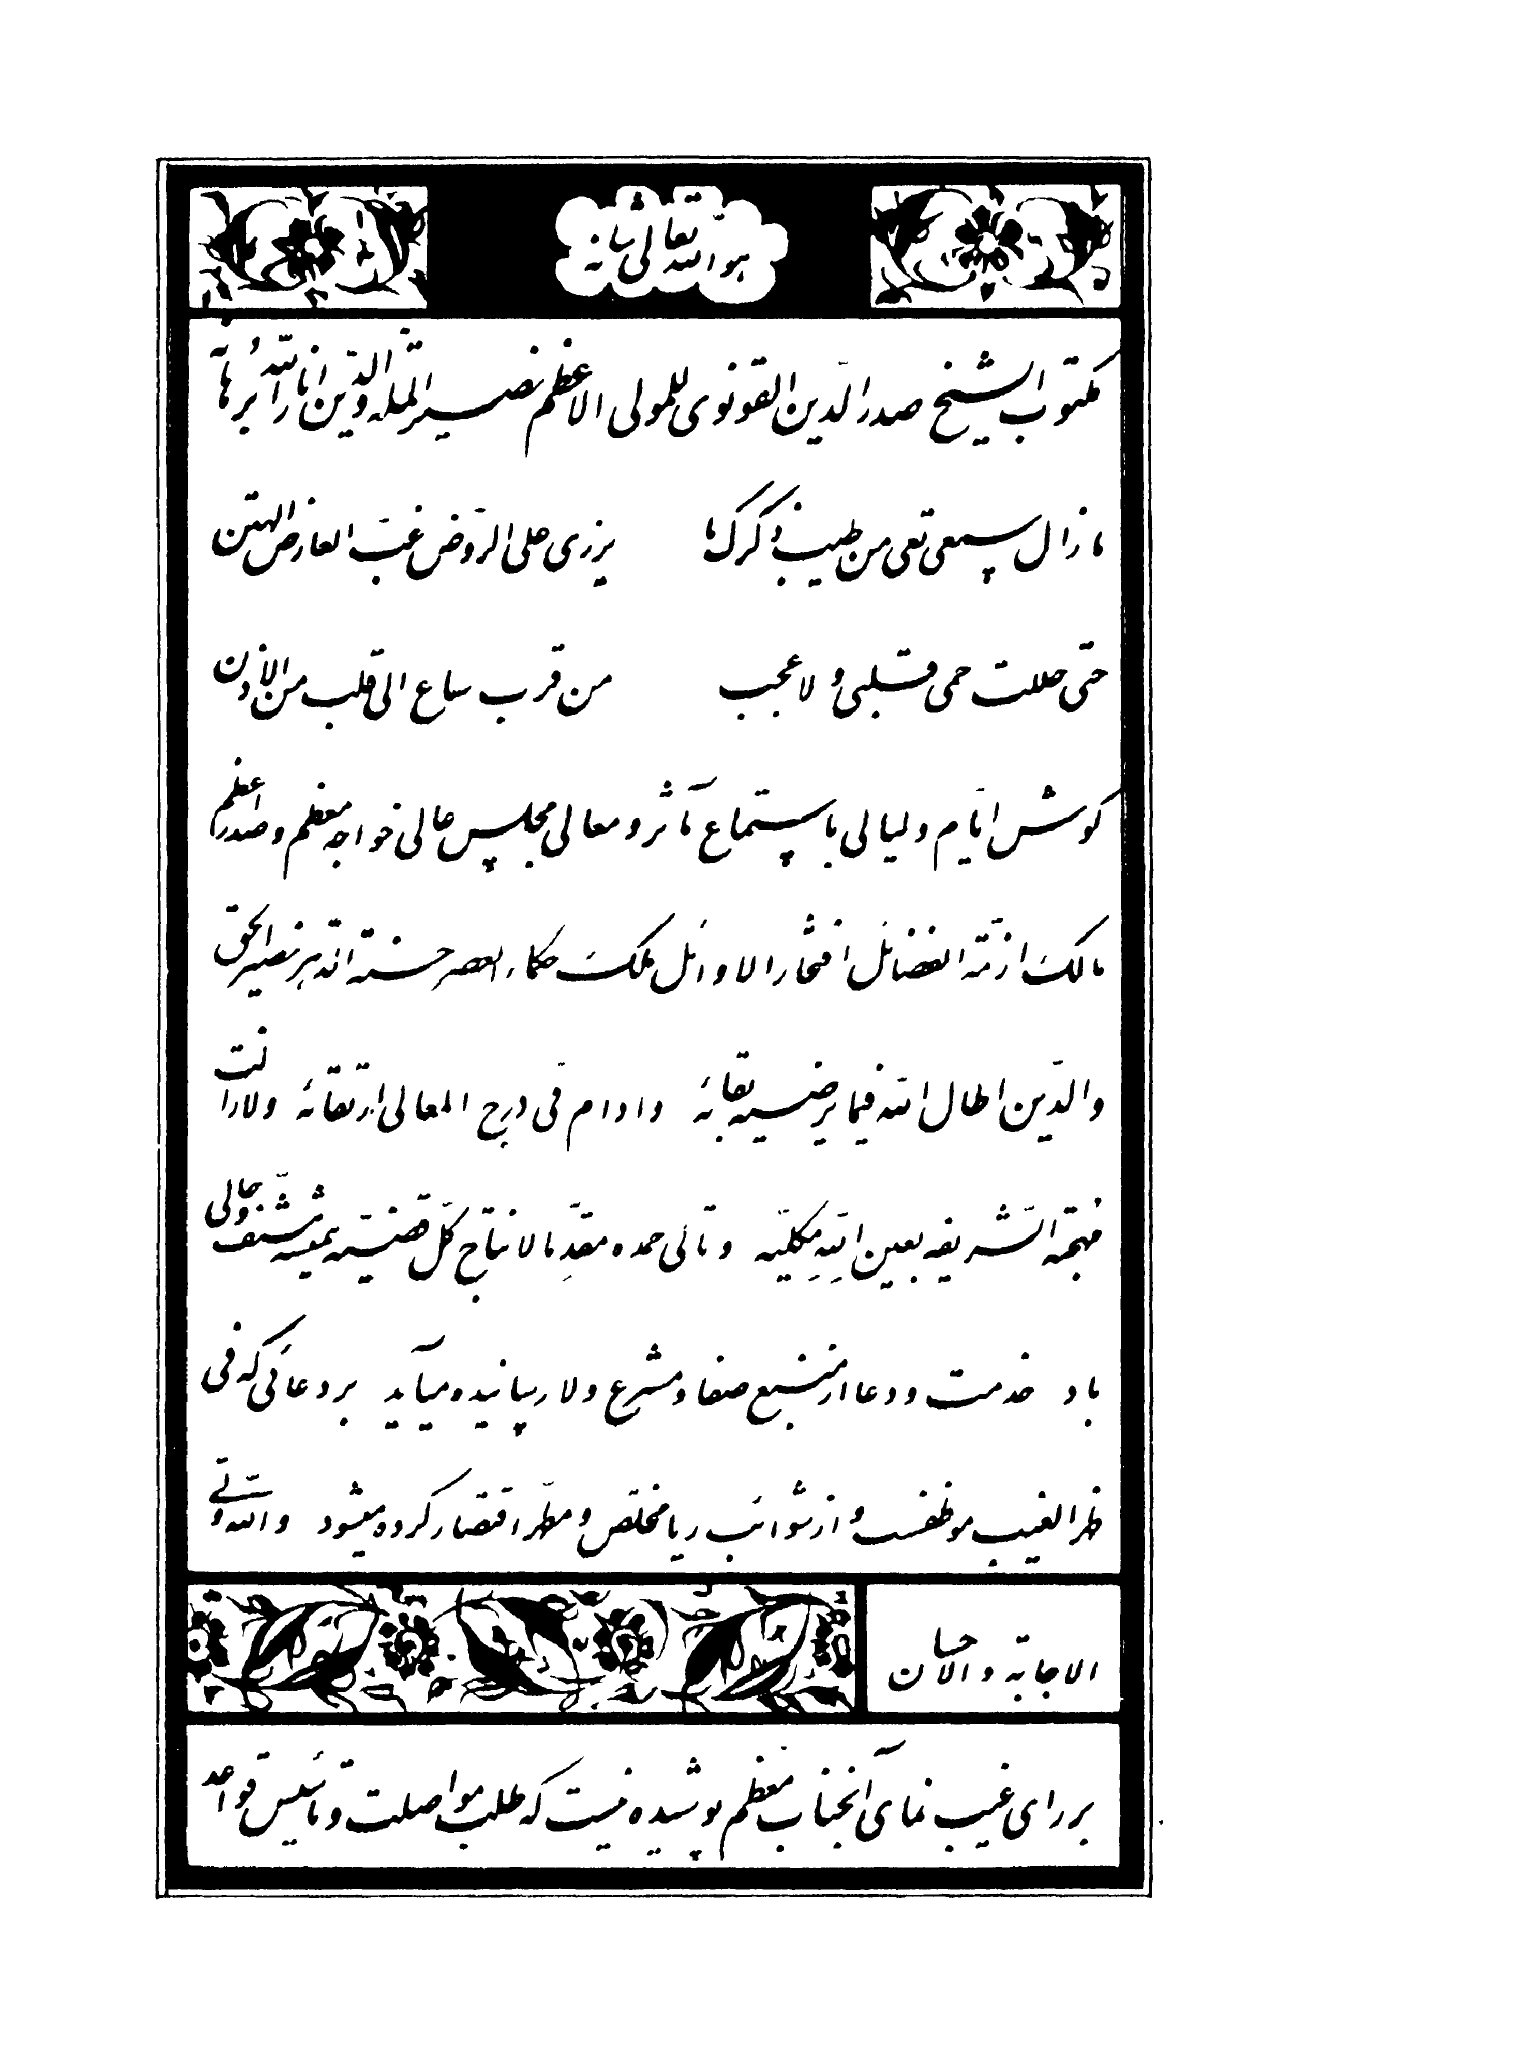 هو الله تعالی شانه
مکتوب الشیخ صدر الدّین القونوی للمولی الاعظم نصیر الملة و الدّین انار الله برهانه
ما زال سمعی تعی من طیب ذکرک ما یزری علی الرّوض غبّ العارض الهتن
حتّی حللت حمی قلبی و لا عجب من قرب ساع الی قلب من الاذن
کوش ایّام و لیالی باستماع مآثر و معالی مجلس عالی خواجه معظم و صدر اعظم
مالک ازمّه الفضائل افتخار الاوائل ملک حکماء العصر حسنة الدهر نصیر الحق
والدّین اطال اللّه فیما یرضیه بقائه و ادام فی درج المعالی ارتقائه و لازالت
مهجته الشّریفه بعین اللّهِ مکلیّه و تالی حمده مقدّما لانتاج کلّ قضیّته همیشه مشنّف و حالی
باد خدمت و دعا از منبع صفا و مشرع ولا رسانیده میآید بر دعائی که فی
ظهر الغیب موظفست و از شوائب ریا مخلّص و مطهّر اقتصار کرده میشود واللّه ولیّ
الاجابة و الاحسان
بر رای غیب نمای آنجناب معظم پوشیده نیست که طلب مواصلت و تأسیس قواعد